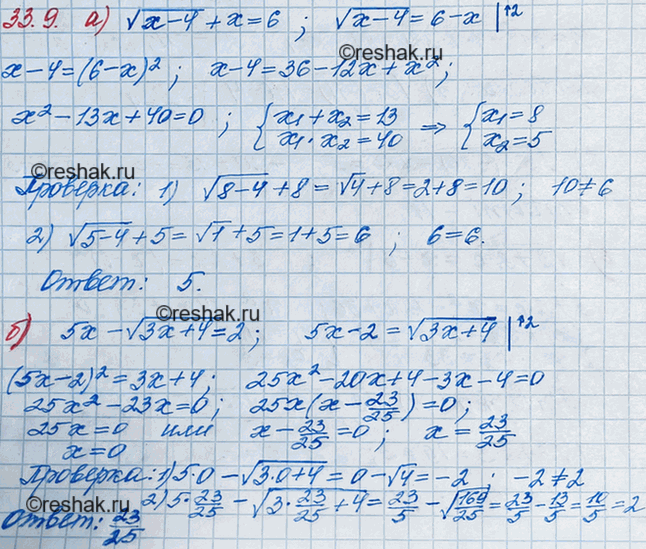 33.9. а) √(x-4) + x = 6 ; √(x-4) = 6 - x |↑2
x - 4 = (6 - x)² ; x - 4 = 36 - 12x + x² ;
x² - 13x + 40 = 0 ; { x₁ + x₂ = 13 x₁ · x₂ = 40 ⇒ { x₁ = 8 x₂ = 5
©reshak.ru
Проверка: 1) √(8-4) + 8 = √4 + 8 = 2 + 8 = 10 ; 10 ≠ 6
2) √(5-4) + 5 = √1 + 5 = 1 + 5 = 6 ; 6 = 6.
Ответ: 5.
©reshak.ru
б) 5x - √(3x+4) = 2 ; 5x - 2 = √(3x+4) |↑2
(5x-2)² = 3x + 4 ; 25x² - 20x + 4 - 3x - 4 = 0
25x² - 23x = 0 ; 25x(x - 23/25) = 0 ;
25x = 0 или x - 23/25 = 0 ; x = 23/25
x = 0
Проверка: 1) 5·0 - √(3·0+4) = 0 - √4 = -2 ; -2 ≠ 2
2) 5·23/25 - √(3·23/25 + 4) = 23/5 - √(169/25) = 23/5 - 13/5 = 10/5 = 2
Ответ: 23/25
©reshak.ru